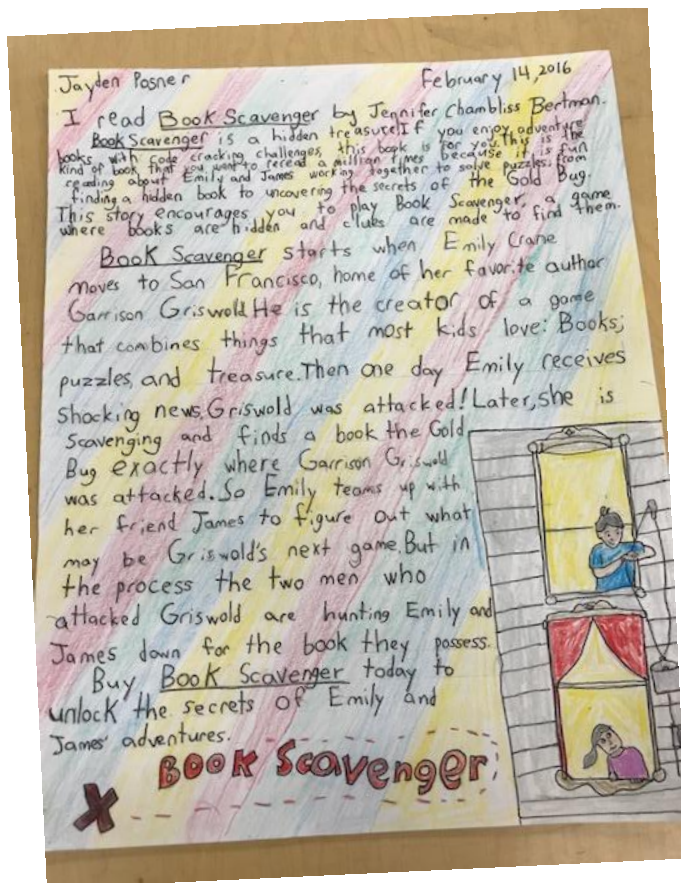 Jayden Posner February 14, 2016
I read Book Scavenger by Jennifer Chambliss Bertman.
Book Scavenger is a hidden treasure! If you enjoy adventure
books with code cracking challenges, this book is for you. This is the
kind of book that you want to reread a million times because it is fun
reading about Emily and James working together to solve puzzles: from
finding a hidden book to uncovering the secrets of the Gold Bug.
This story encourages you to play Book Scavenger, a game
where books are hidden and clues are made to find them.
Book Scavenger starts when Emily Crane
moves to San Francisco, home of her favorite author
Garrison Griswold. He is the creator of a game
that combines things that most kids love: Books,
puzzles, and treasure. Then one day Emily receives
shocking news, Griswold was attacked! Later, she is
Scavenging and finds a book the Gold
Bug exactly where Garrison Griswold
was attacked. So Emily teams up with
her friend James to figure out what
may be Griswold's next game. But in
the process the two men who
attacked Griswold are hunting Emily and
James down for the book they possess.
Buy Book Scavenger today to
unlock the secrets of Emily and
James' adventures.
Book Scavenger
X